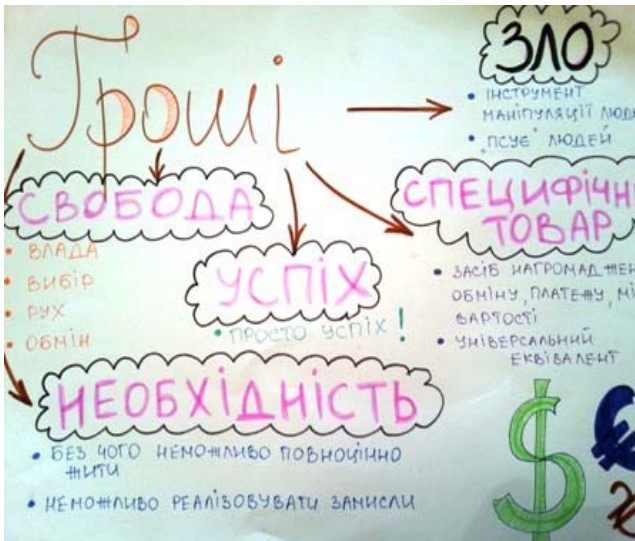 Гроші
ЗЛО
• ІНСТРУМЕНТ
МАНІПУЛЯЦІЇ ЛЮД
• "ПСУЄ" ЛЮДЕЙ
СВОБОДА
• ВЛАДА
• ВИБІР
• РУХ
• ОБМІН
УСПІХ
• ПРОСТО УСПІХ!
СПЕЦИФІЧН
ТОВАР
• ЗАСІБ НАГРОМАДЖЕН
ОБМІНУ, ПЛАТЕЖУ, МІ
ВАРТОСТІ
• УНІВЕРСАЛЬНИЙ
ЕКВІВАЛЕНТ
НЕОБХІДНІСТЬ
• БЕЗ ЧОГО НЕМОЖЛИВО ПОВНОЦІННО
ЖИТИ
• НЕМОЖЛИВО РЕАЛІЗОВУВАТИ ЗАМИСЛИ
$ €